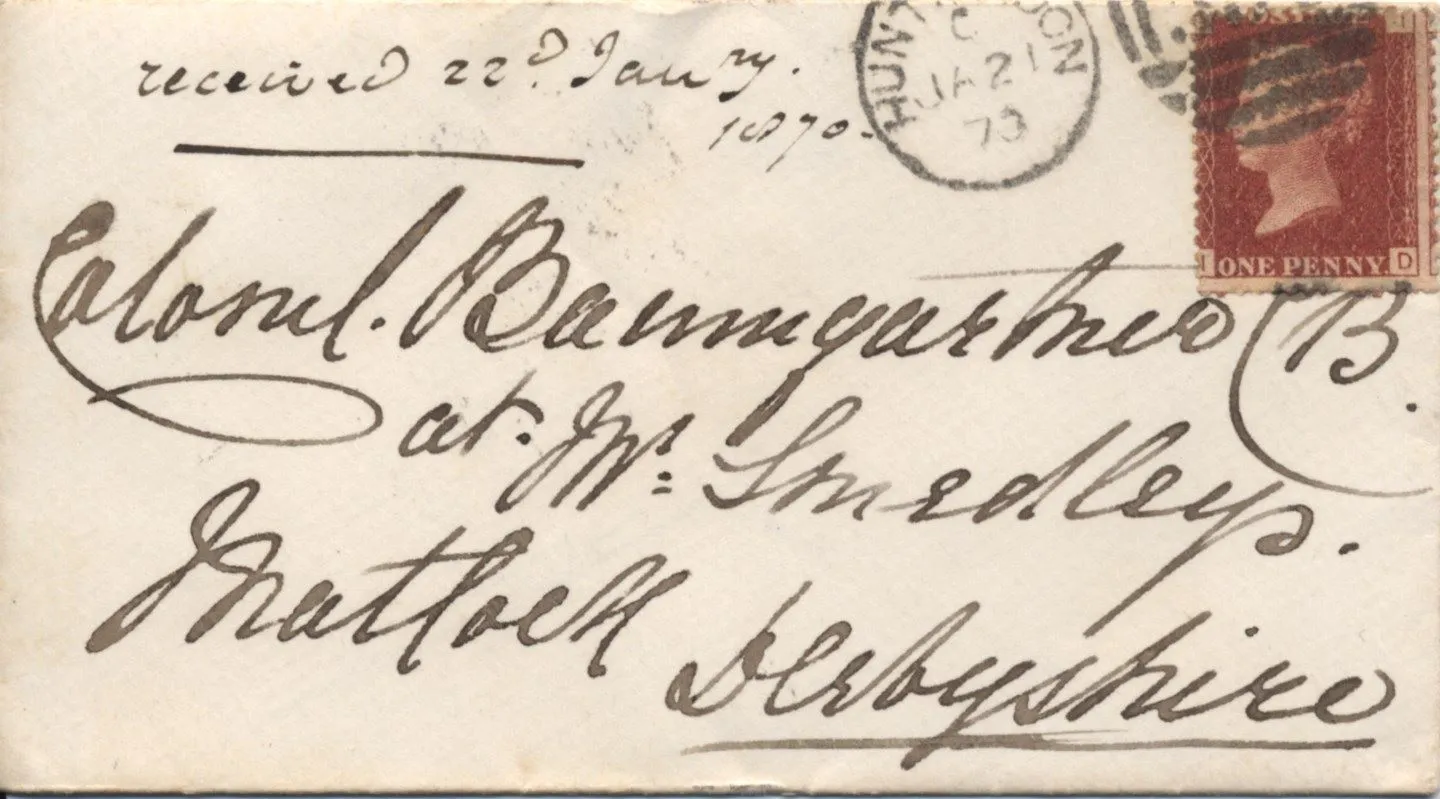 received 22d. Jany.
1870.
HUNT DON
C
JA 21
70
POSTAGE
I D
ONE PENNY.
Colonel. Baumgartner CB.
at. Mr: Smedleys.
Matlock
Derbyshire